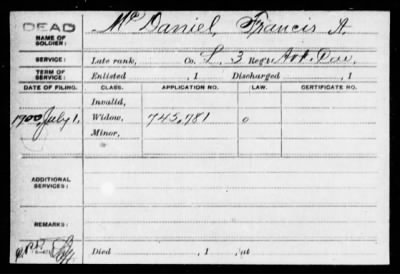 DEAD Mc Daniel, Francis A.
NAME OF
SOLDIER:
SERVICE: Late rank, Co. L, 3 Reg't Ark. Cav.
TERM OF
SERVICE: Enlisted , 1 Discharged , 1
DATE OF FILING. CLASS. APPLICATION NO. LAW. CERTIFICATE NO.
Invalid,
1900 July 1, Widow, 745,781 o
Minor,
ADDITIONAL
SERVICES:
REMARKS:
Died , 1 , at